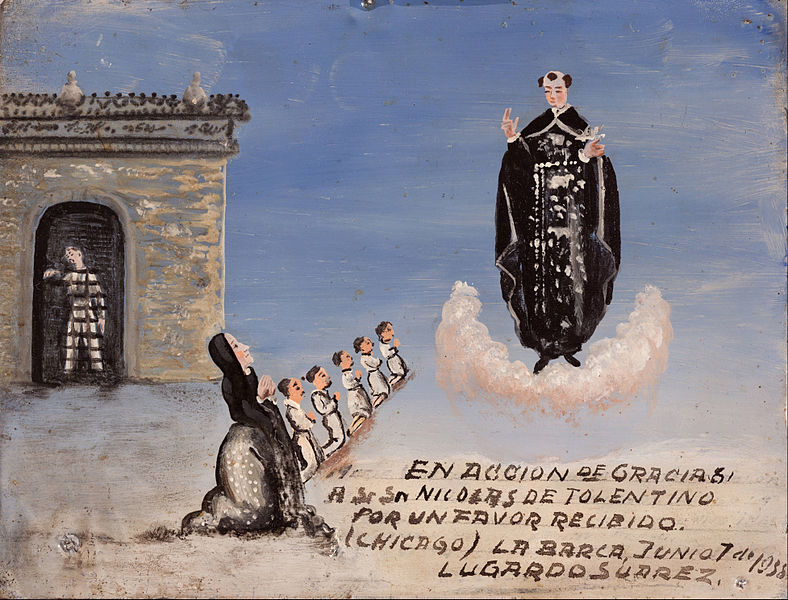 EN ACCION DE GRACIAS!
A Sr Sn NICOLAS DE TOLENTINO
POR UN FAVOR RECIBIDO.
(CHICAGO) LA BARCA, JUNIO 7 de 1938
LUGARDO SUAREZ.